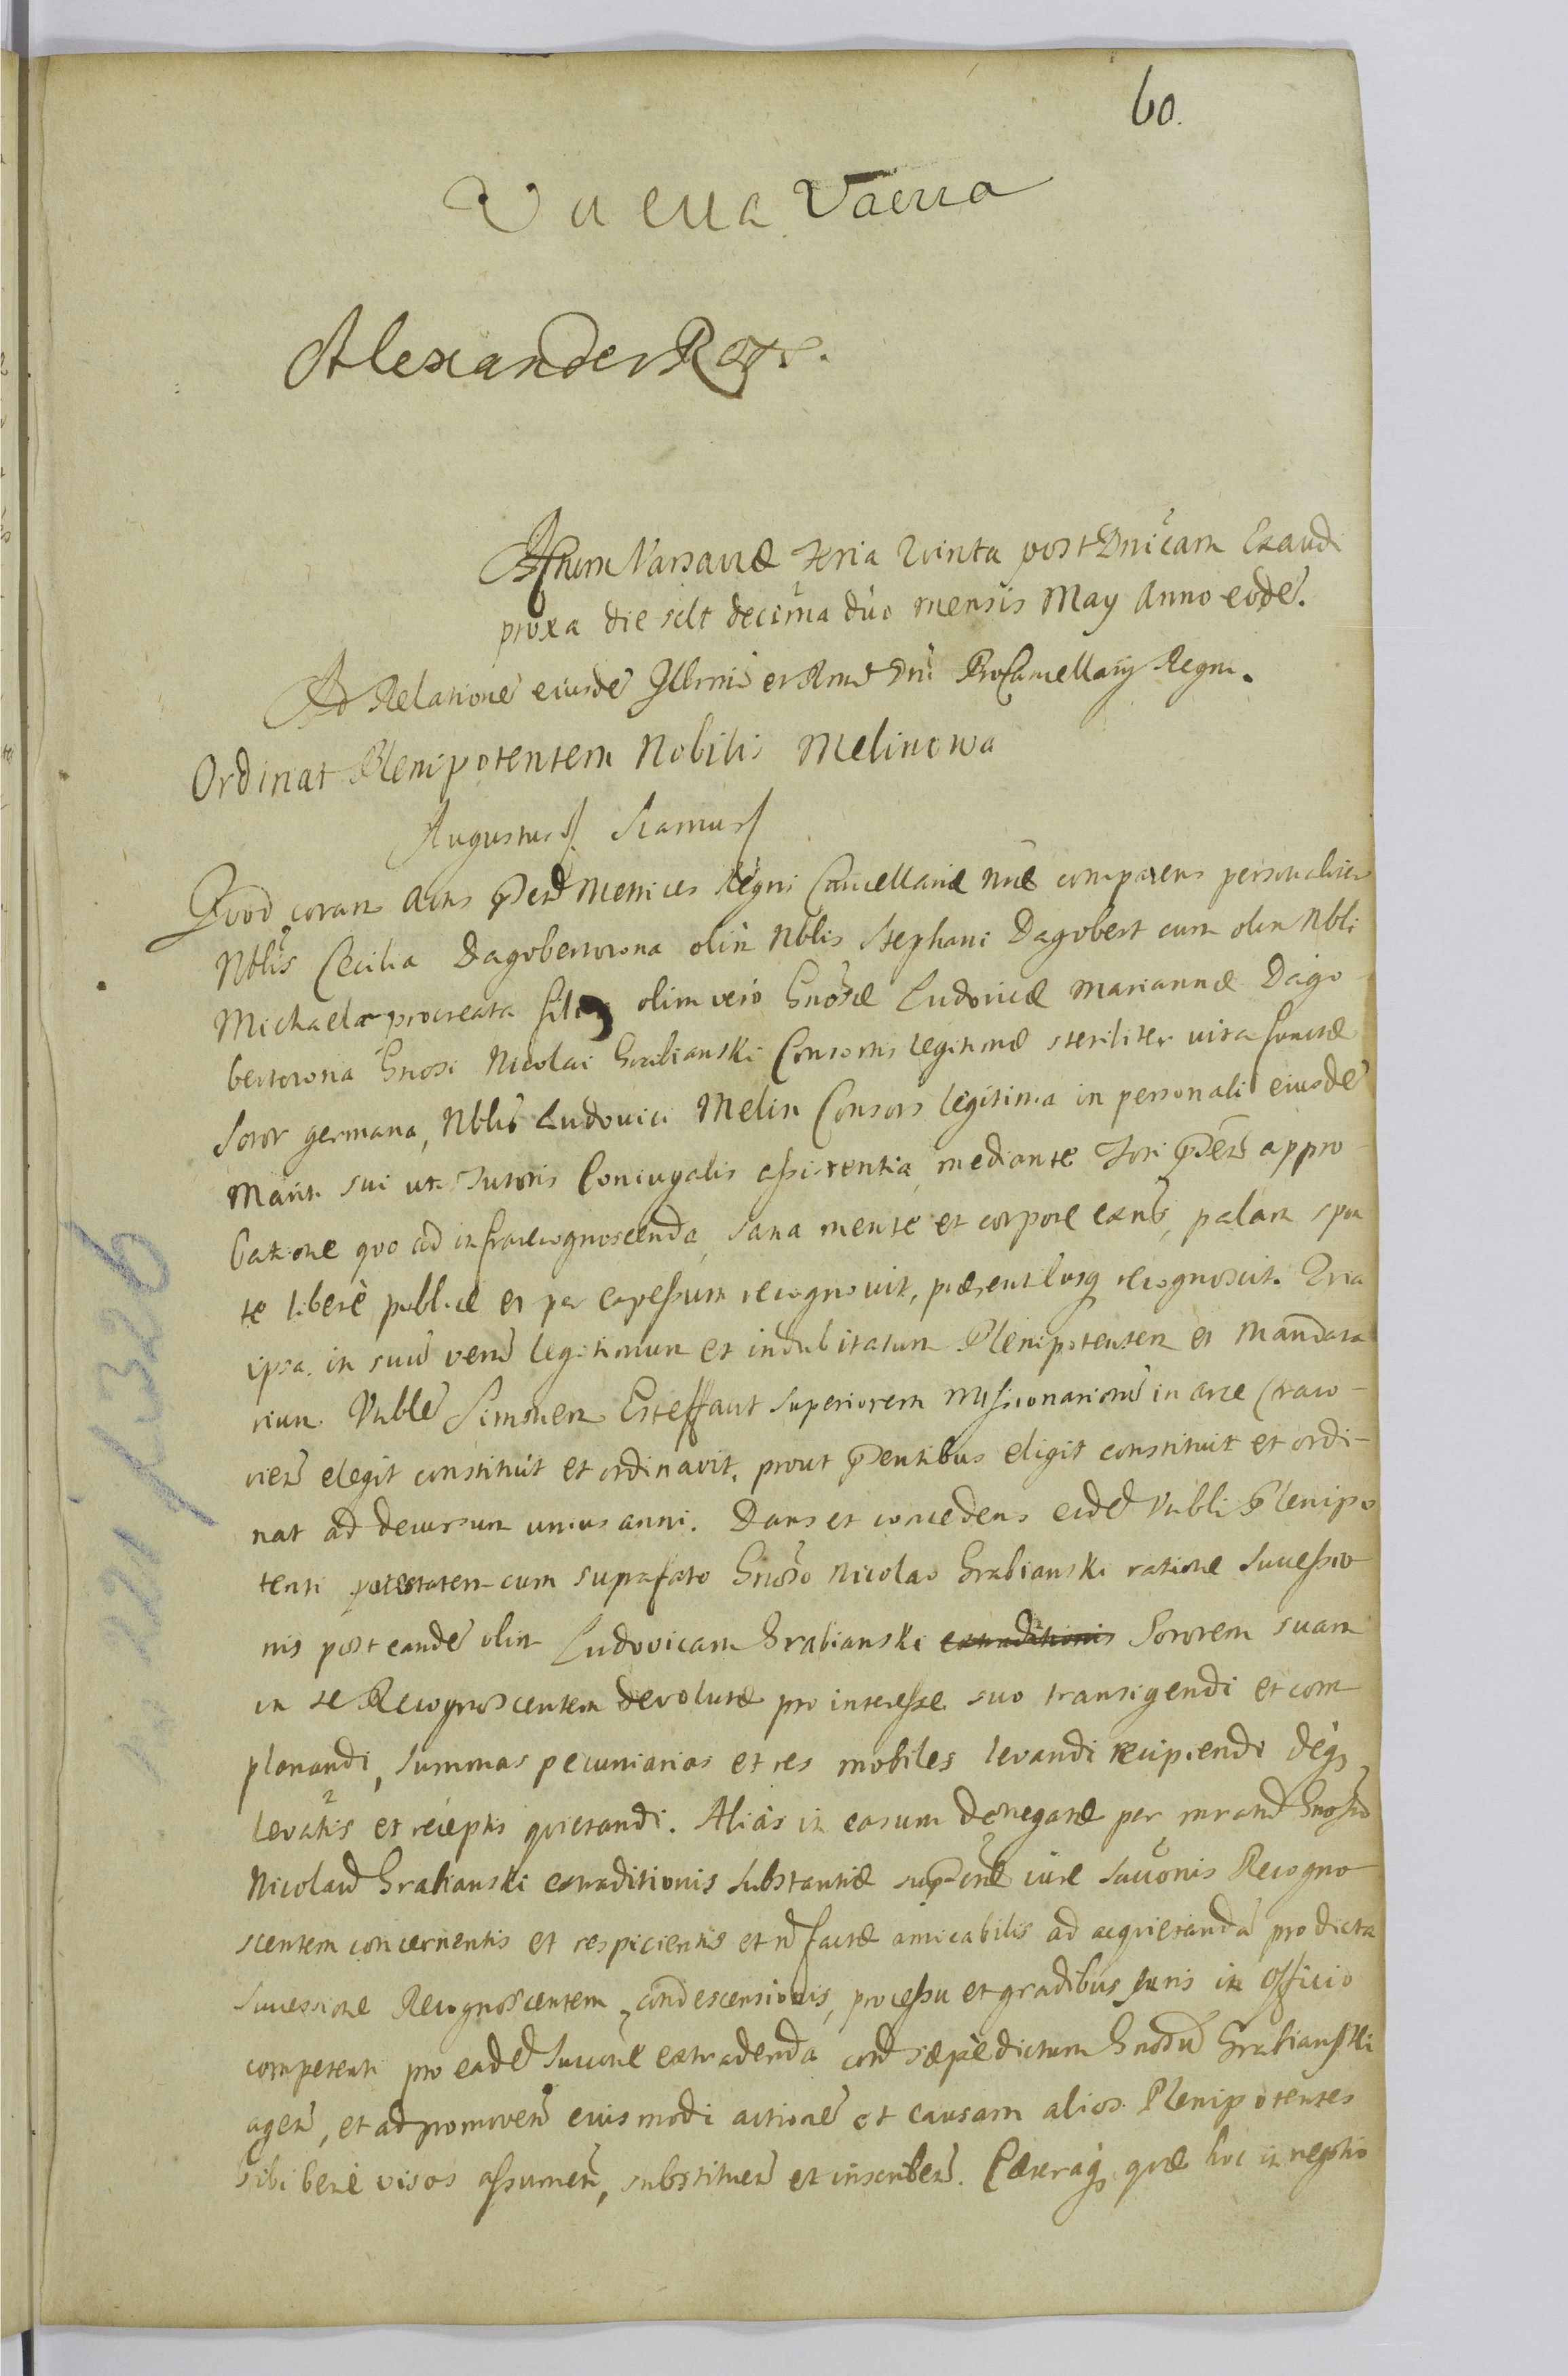 60.
Vacua Vacua
Alexander Rex.
Actum Varsaviæ Feria Quinta post Dnicam Exaudi
proxa die sclt decima duo mensis May Anno eode.
Ad Relatione eiusde Illmi et Rmd Dni ProCancellarij Regni.
Ordinat Plenipotentem Nobilis Melinowa
Augustus Scdus
Quod coram Actis pntibus Metrices Regni Cancellariæ mnæ comparens personaliter
Nblis Cecilia Dagobertowna olim Nblis Stephani Dagobert cum olim Nbli
Michaela procreata filia olim vero Gnosæ Ludovicæ Mariannæ Dago-
bertowna Gnosi Nicolai Grabianski Consortis legitimæ steriliter vita functæ
Soror germana, Nblis Ludovici Melin Consors legitima in personali eiusde
Mariti sui uti Tutoris Coniugalis assistentia, mediante Fori pntis appro-
batione quo ad infrarecognoscenda, sana mente et corpore exns, palam spon
te liberè publicè et per expressum recognovit, præsentibusq recognoscit. Quia
ipsa in suu veru legitimum et indubitatum Plenipotentem et Mandata
rium Vnble Simonem Esteffaut Superiorem Missionarioru in arce Craco-
vien elegit constituit et ordinavit, prout pntibus eligit constituit et ordi-
nat ad decursum unius anni. Dans et concedens eidem Vnbli Plenipo
tenti potestatem cum suprafato Gnoso Nicolao Grabianski ratione Successio
nis post eande olim Ludovicam Grabianski extraditionis Sororem suam
in se Recognoscentem devolutæ pro interesse suo transigendi et com
planandi, summas pecuniarias et res mobiles levandi recipiendi deq
levatis et receptis quietandi. Aliàs in casum denegatæ per mratum Gnosum
Nicolaum Grabianski extraditionis substantiæ iure Succonis Recogno
scentem concernentis et respicientis et n factæ amicabilis ad acquietanda pro dicta
Successione Recognoscentem condescensionis, processu et gradibus Iuris in Officio
competenti pro eadem Succone extradenda sæpedictum Gnosum Grabianski
agen, et ad promoven euismodi actione et causam alios Plenipotentes
sibi benè visos assumen, substituen et inscriben. Cæteraq quæ hoc in negotio